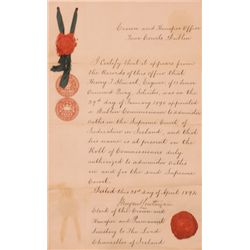 Crown and Hanaper Office
Four Courts, Dublin
I Certify that it appears from
the Records of this office that
Henry J. Esquire of
Solicitor, was on the
29th day of January 1890 appointed
a Public Commissioner to administer
Oaths in the Supreme Court of
Judicature in Ireland, and that
his name is at present on the
Roll of Commissioners duly
authorized to administer Oaths
in and for the said Supreme
Court.
Dated this 21st day of April 1892
Clerk of the Crown and
Hanaper and Permanent
Secretary to The Lord
Chancellor of Ireland